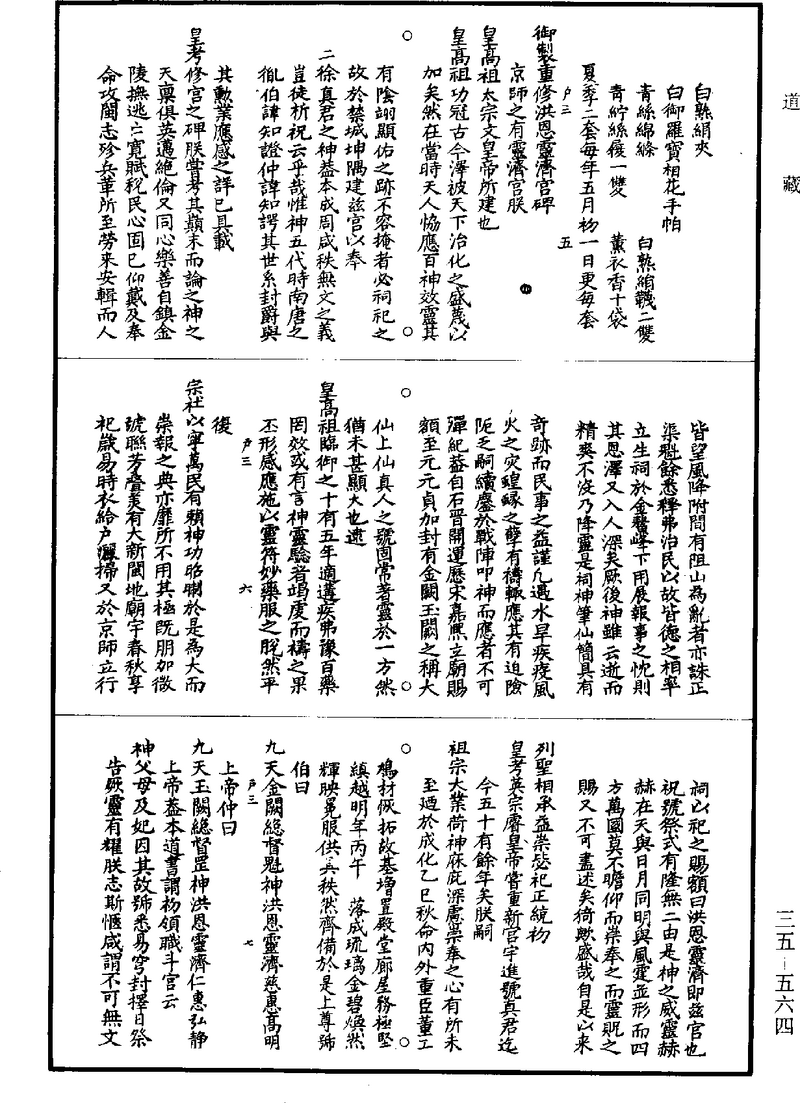 道藏
白熟絹夾
白御羅寶相花手帕
青絲綿縧　白熟絹襪二雙
青紵絲履一雙　薰衣香十袋
夏季二套每年五月初一日更每套
戶三　五
御製重修洪恩靈濟宮碑
京師之有靈濟宮朕
皇高祖太宗文皇帝所建也
皇高祖功冠古今澤被天下治化之盛蔑以
加矣然在當時天人協應百神效靈其
有陰翊顯佑之跡不容掩者必祠祀之
故於禁城坤隅建茲宮以奉
二徐真君之神蓋本成周咸秩無文之義
豈徒祈祝云乎哉惟神五代時南唐之
胤伯諱知證仲諱知諤其世系封爵與
其勳業應感之詳已具載
皇考修宮之碑朕嘗考其顛末而論之神之
天稟俱英邁絶倫又同心樂善自鎮金
陵撫逃亡寬賦稅民心固已仰戴及奉
命攻閩志殄兵革所至勞來安輯而人
皆望風降附間有阻山為亂者亦誅正
渠魁餘悉釋弗治民以故皆德之相率
立生祠於金鰲峰下用展報事之忱則
其恩澤又入人深矣厥後神雖云逝而
精爽不沒乃降靈是祠神筆仙簡具有
奇跡而民事之益謹凡遇水旱疾疫風
火之灾蝗蝝之孽有禱輒應其有迫險
阨乏嗣續鏖於戰陣叩神而應者不可
殫紀蓋自石晉開運歷宋嘉熙立廟賜
額至元元貞加封有金闕玉闕之稱大
仙上仙真人之號固常著靈於一方然
猶未甚顯大也逮
皇高祖臨御之十有五年適遘疾弗豫百藥
罔效或有言神靈驗者竭虔而禱之果
丕形感應施以靈符妙藥服之脫然平
戶三　六
復
宗社以寧萬民有賴神功昭晰於是為大而
崇報之典亦靡所不用其極既朋加徽
號聯芳疊美有大新閩地廟宇春秋享
祀歲易時衣給戶灑掃又於京師立行
祠以祀之賜額曰洪恩靈濟即茲宮也
祝號祭式有隆無二由是神之威靈赫
赫在天與日月同明與風霆並形而四
方萬國莫不瞻仰而崇奉之而靈貺之
賜又不可盡述矣猗歟盛哉自是以來
列聖相承益崇毖祀正統初
皇考英宗睿皇帝嘗重新宮宇進號真君迄
今五十有餘年矣朕嗣
祖宗大業荷神庥庇深慮崇奉之心有所未
至迺於成化乙巳秋命內外重臣董工
鳩材恢拓故基增置殿堂廊屋務極堅
縝越明年丙午　落成琉璃金碧煥然
輝映冕服供具秩然齊備於是上尊號
伯曰
九天金闕總督魁神洪恩靈濟慈惠高明
戶三　七
上帝仲曰
九天玉闕總督罡神洪恩靈濟仁惠弘靜
上帝蓋本道書謂初領職斗宮云
神父母及妃因其故號悉易穹封擇日祭
告厥靈有耀朕志斯愜咸謂不可無文
三五－五六四